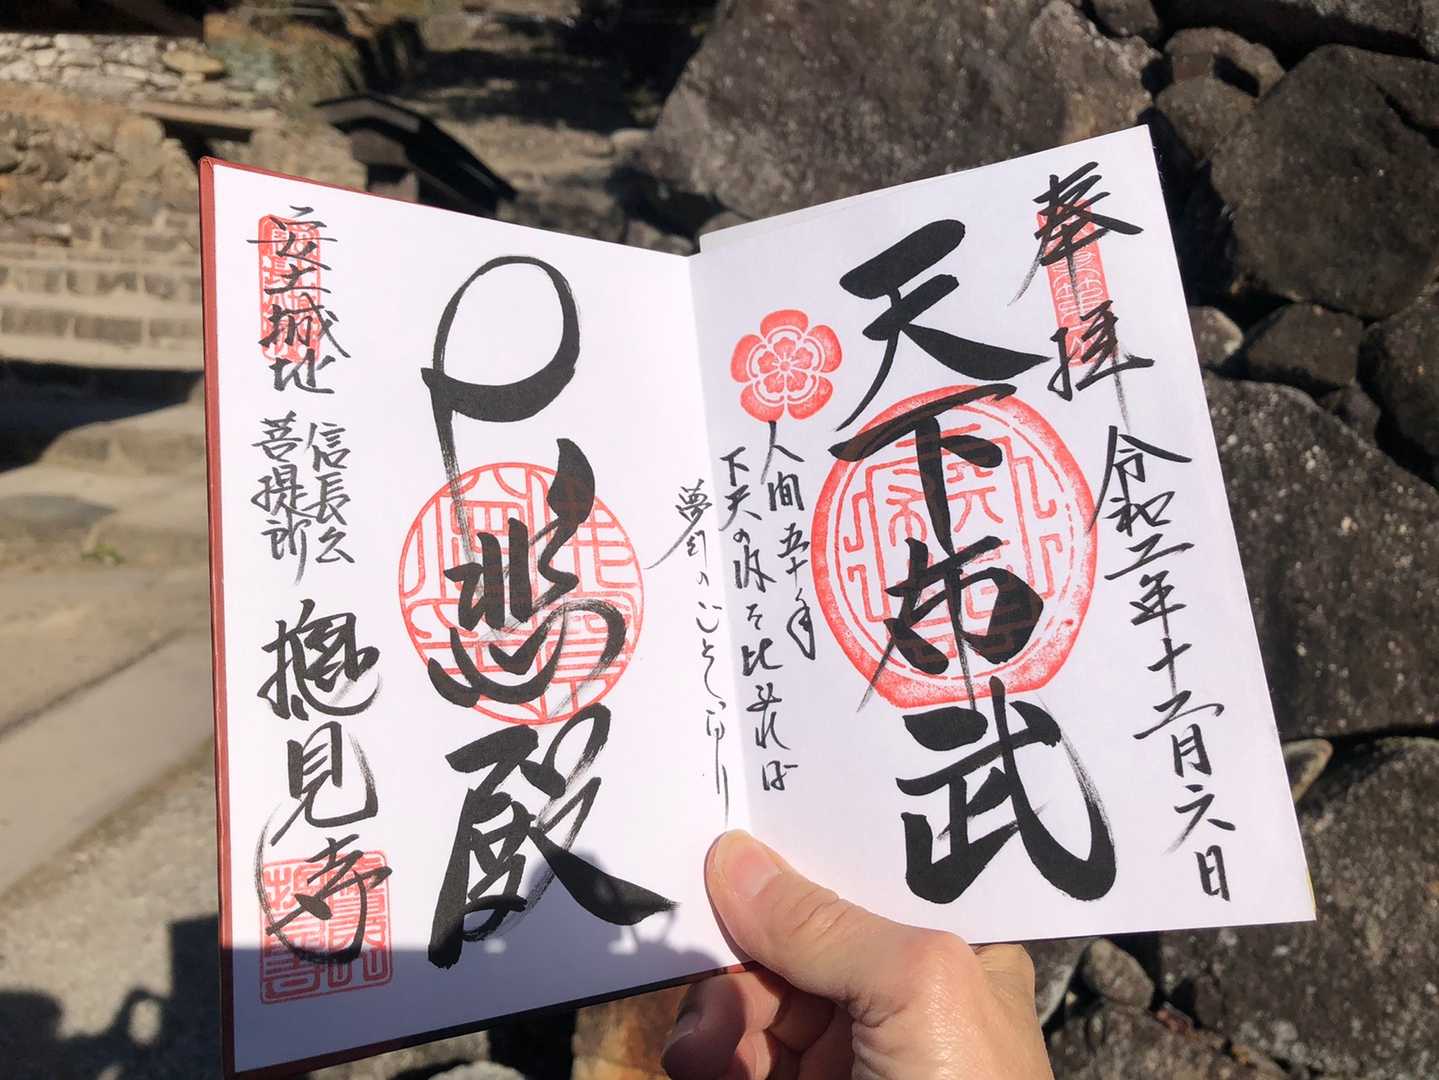 奉拝
令和二年十二月六日
天下布武
人間五十年
下天の内を比ぶれば
夢幻のごとくなり
大悲殿
安土城址
信長公
菩提所
摠見寺